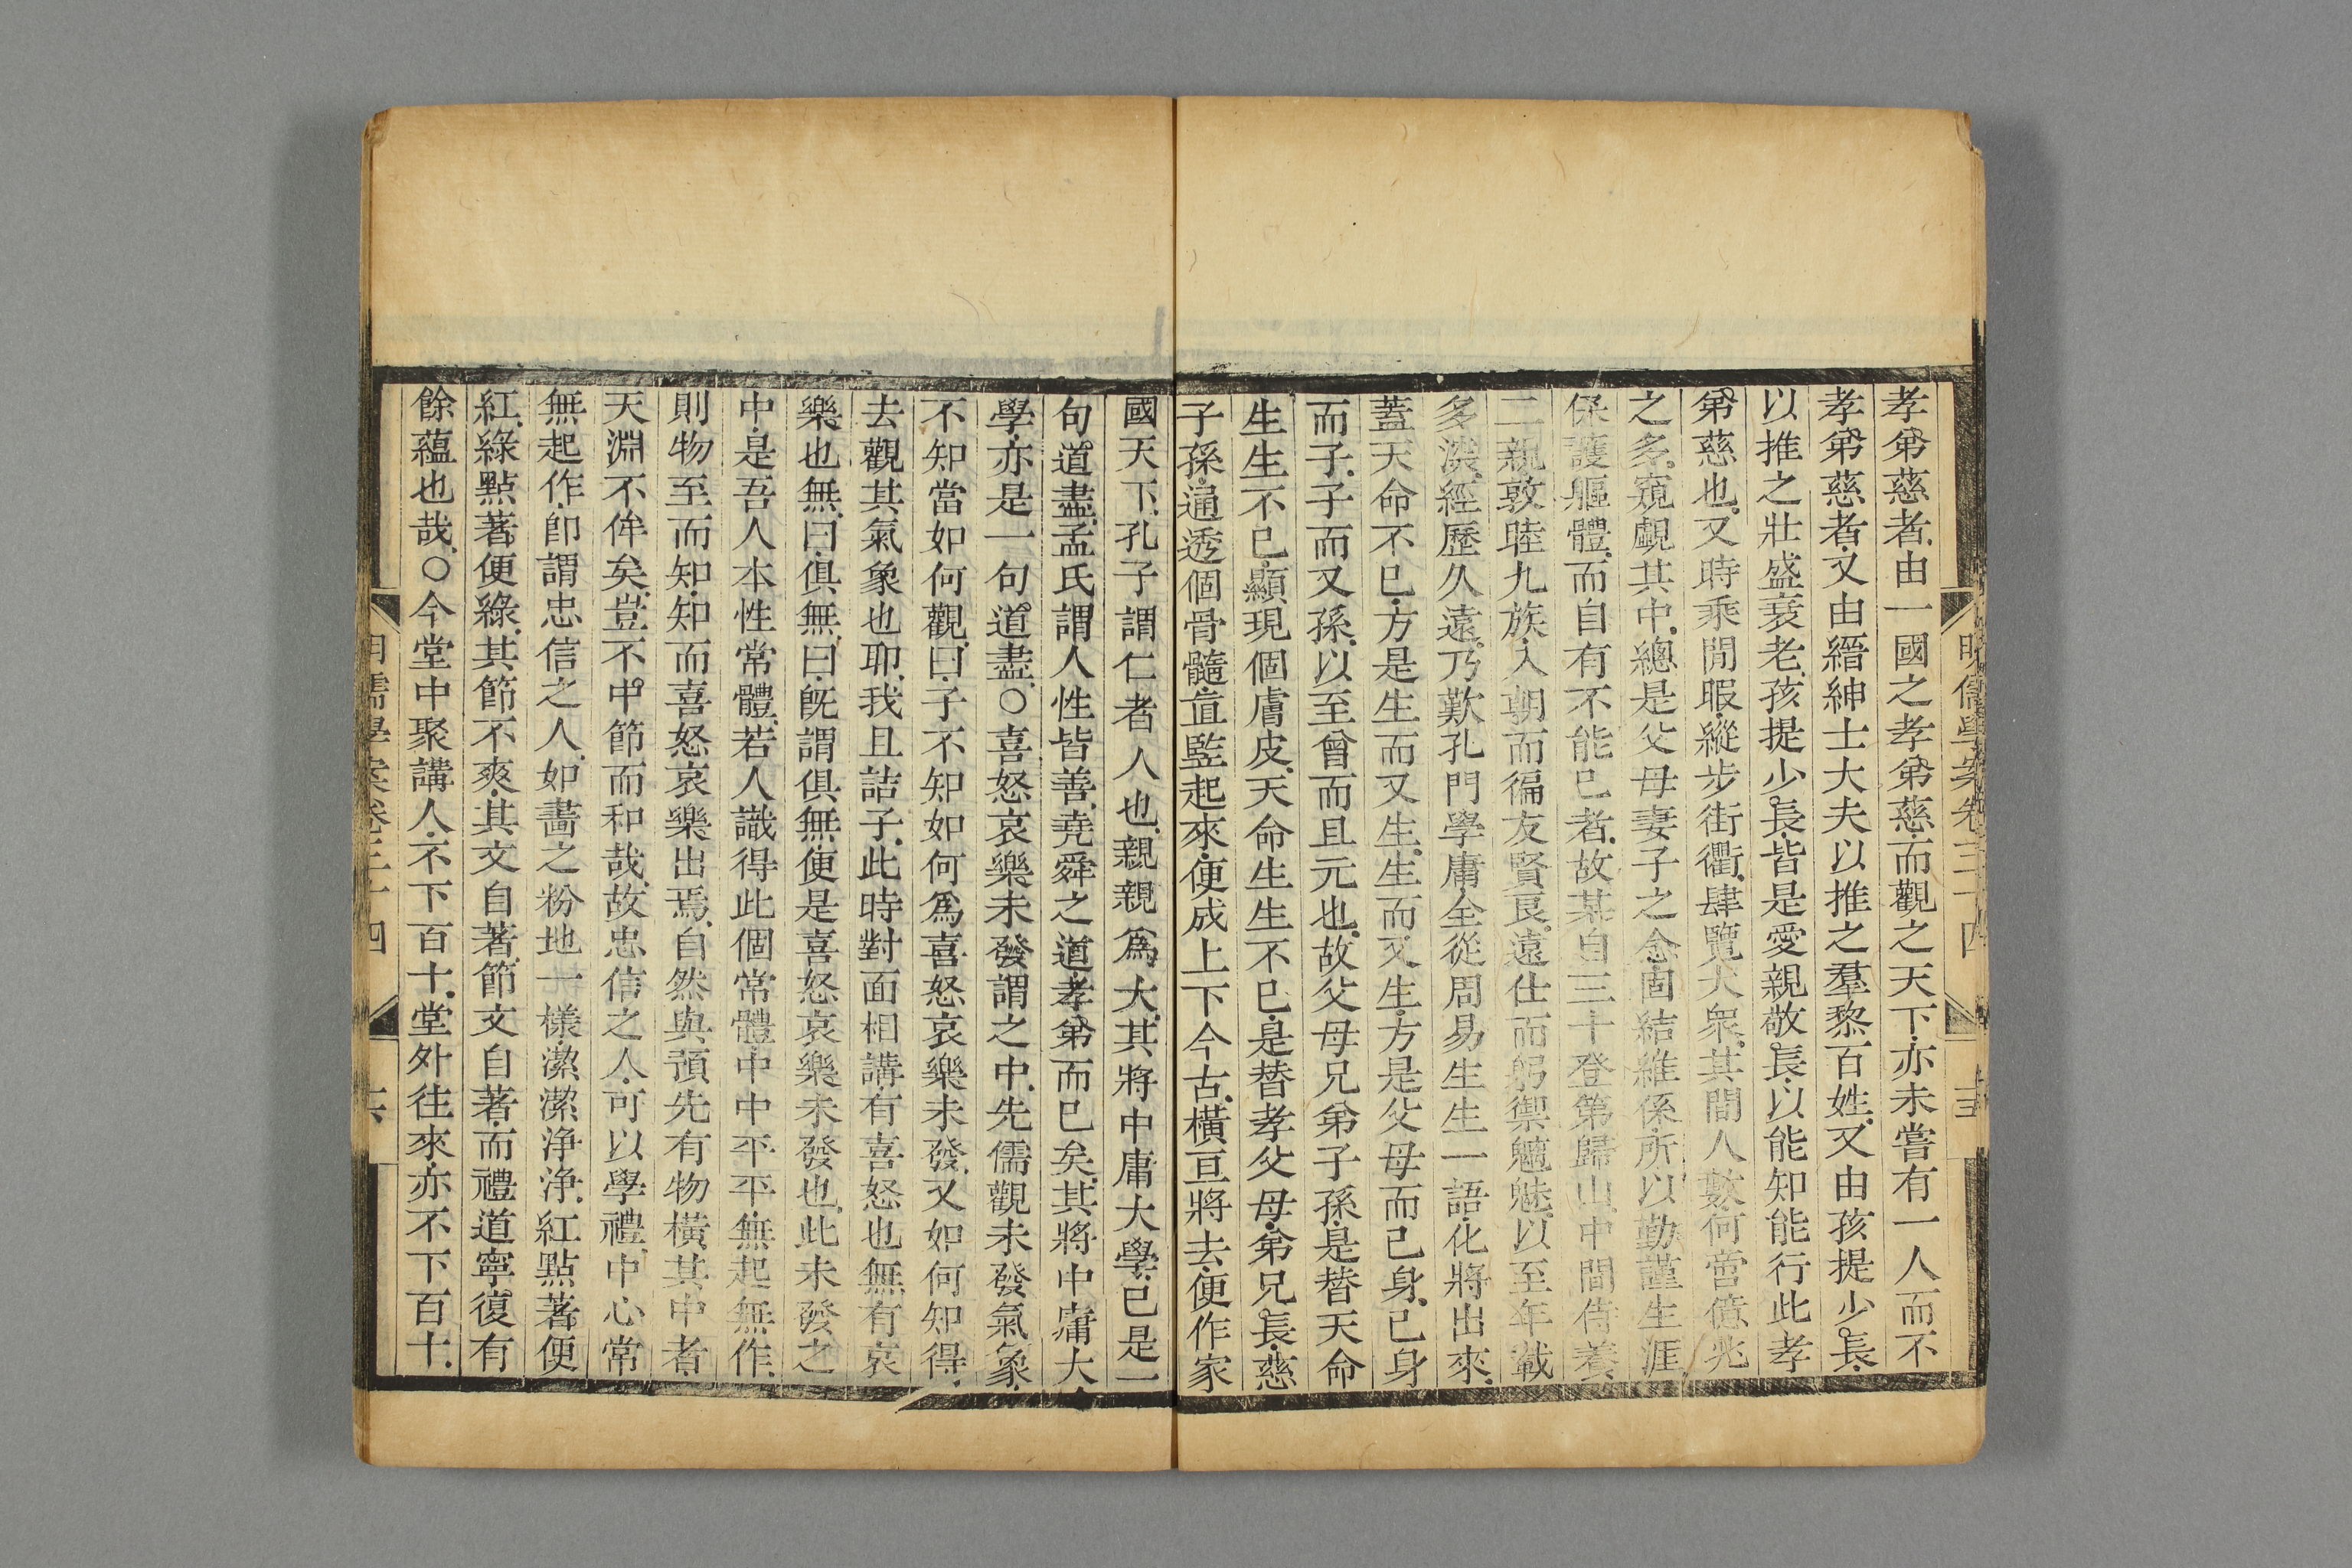 孝弟慈者由一國之孝弟慈而觀之天下亦未嘗有一人而不
孝弟慈者又由縉紳士大夫以推之羣黎百姓又由孩提少長
以推之壯盛衰老孩提少長皆是愛親敬長以能知能行此孝
弟慈也又時乘閒暇縱步街衢肆覽大衆其間人數何啻億兆
之多窺覷其中總是父母妻子之念固結維係所以勤謹生涯
保護軀體而自有不能已者故某自三十登第歸山中間侍養
二親敦睦九族入朝而徧友賢良遠仕而躬禦魑魅以至年載
多深經歷久遠乃歎孔門學庸全從周易生生一語化將出來
蓋天命不已方是生而又生生而又生方是父母而己身己身
而子子而又孫以至曾而且元也故父母兄弟子孫是替天命
生生不已顯現個膚皮天命生生不已是替孝父母弟兄長慈
子孫通透個骨髓直豎起來便成上下今古橫亘將去便作家
明儒學案卷三十四
國天下孔子謂仁者人也親親爲大其將中庸大學已是一
句道盡孟氏謂人性皆善堯舜之道孝弟而已矣其將中庸大
學亦是一句道盡○喜怒哀樂未發謂之中先儒觀未發氣象
不知當如何觀曰子不知如何爲喜怒哀樂未發又如何知得
去觀其氣象也耶我且詰子此時對面相講有喜怒也無有哀
樂也無曰俱無曰既謂俱無便是喜怒哀樂未發也此未發之
中是吾人本性常體若人識得此個常體中中平平無起無作
則物至而知知而喜怒哀樂出焉自然與預先有物橫其中者
天淵不侔矣豈不中節而和哉故忠信之人可以學禮中心常
無起作卽謂忠信之人如畵之粉地一樣潔潔淨淨紅點著便
紅綠點著便綠其節不爽其文自著節文自著而禮道寧復有
餘蘊也哉○今堂中聚講人不下百十堂外往來亦不下百十
明儒學案卷三十四